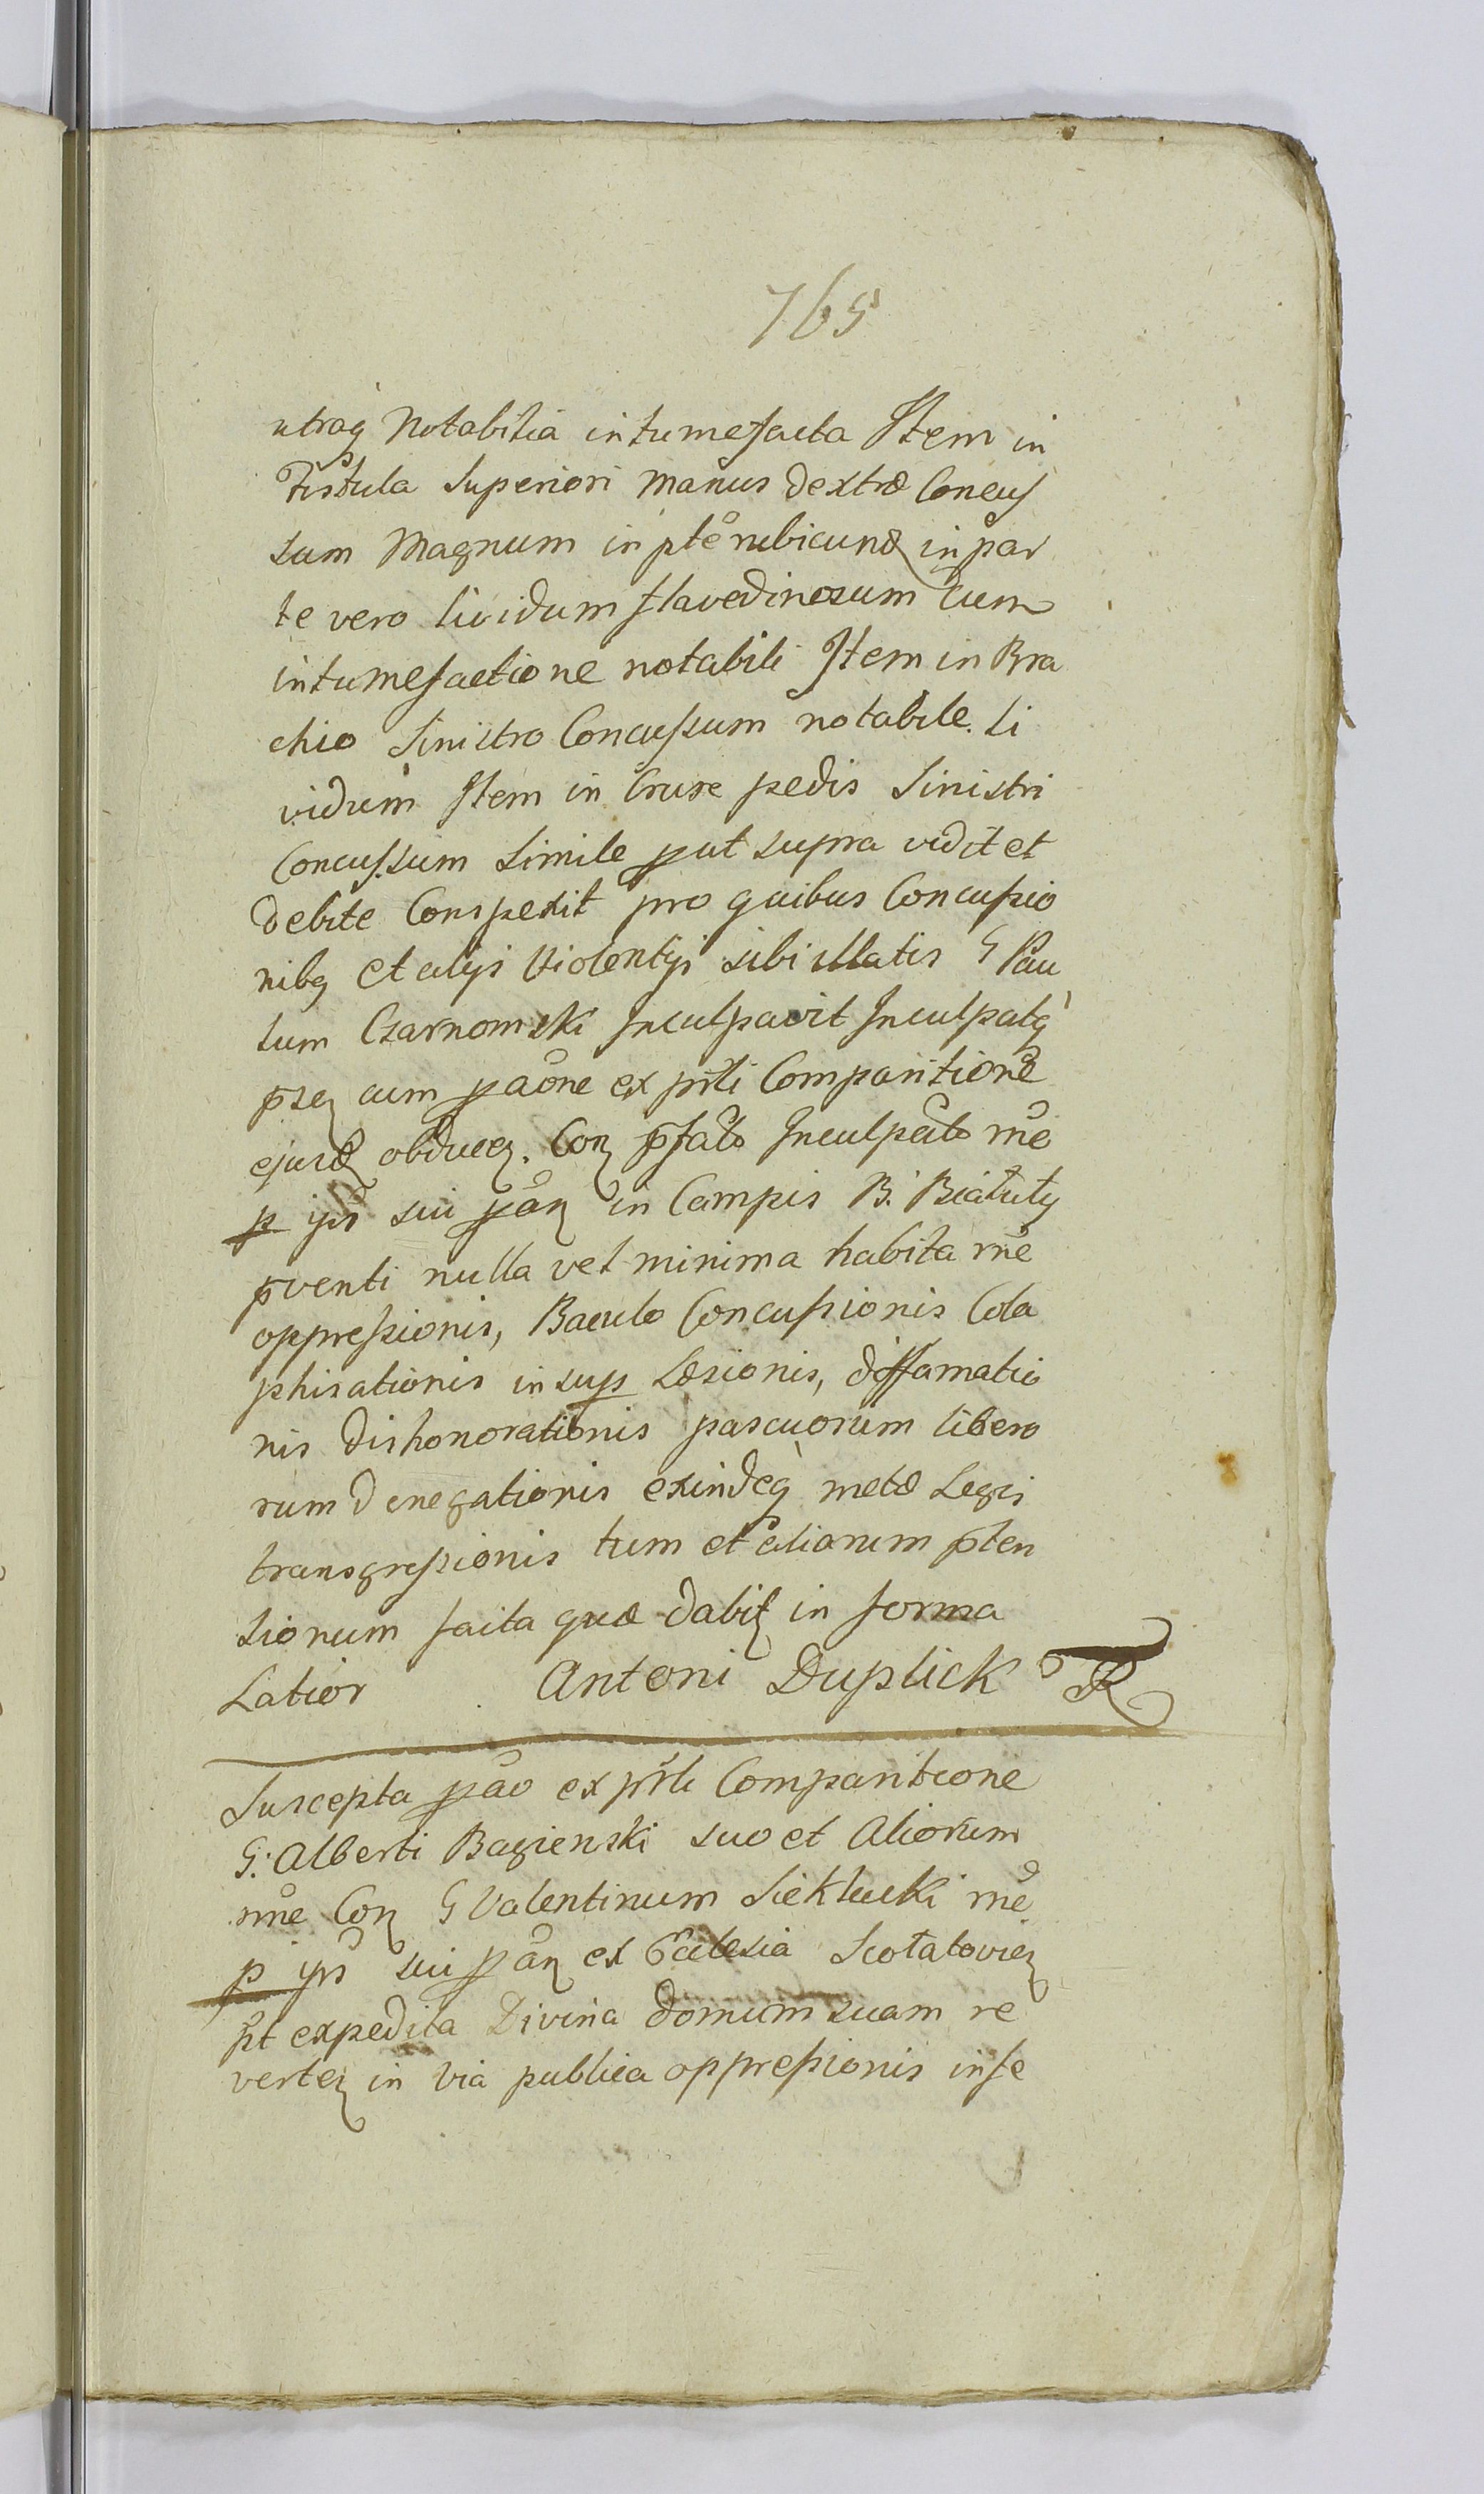 765
utraq Notabilia intumefacta Item in
Fistula Superiori Manus dextræ Concus
sum Magnum in pte rubicund in par
te vero lividum flavedinosum cum
intumefactione notabili Item in Bra
chio Sinistro Concussum notabile. li
vidum Item in Crure pedis Sinistri
Concussum Simile put supra vidit et
debite Conspexit pro quibus Concussio
nibq et alys violentys sibi illatis G Pau
lum Czarnomski Inculpavit Inculpatq
pse cum paone ex prli Comparitione
ejusd obduc. Con pfato Inculpato rne
p yps sui pan in Campis B. Biatuty
pventi nulla vel minima habita rne
oppressionis, Baculo Concussionis Cola
phisationis insup Læsionis, diffamatio
nis dishonorationis pascuorum libero
rum denegationis exindeq metæ Legis
transgressionis tum et aliorum pten
sionum facta quæ dabit in forma
Latior Antoni Duplick
Suscepta pao ex prli Comparitione
G. Alberti Bagienski suo et Aliorum
nne Con G Valentinum Siekłucki rne
p yps sui pan ex Ecclesia
pt expedita Divina domum suam re
verten in via publica oppressionis infe